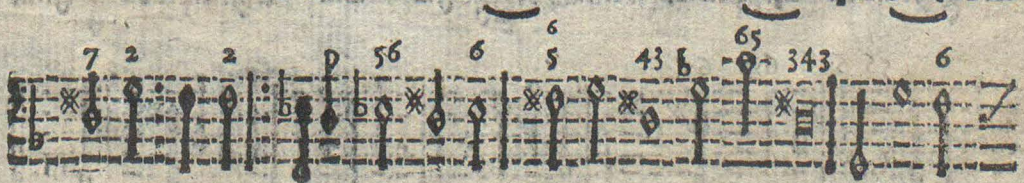 6
7 2 2 p 56 6 5 43 b 65 343 6